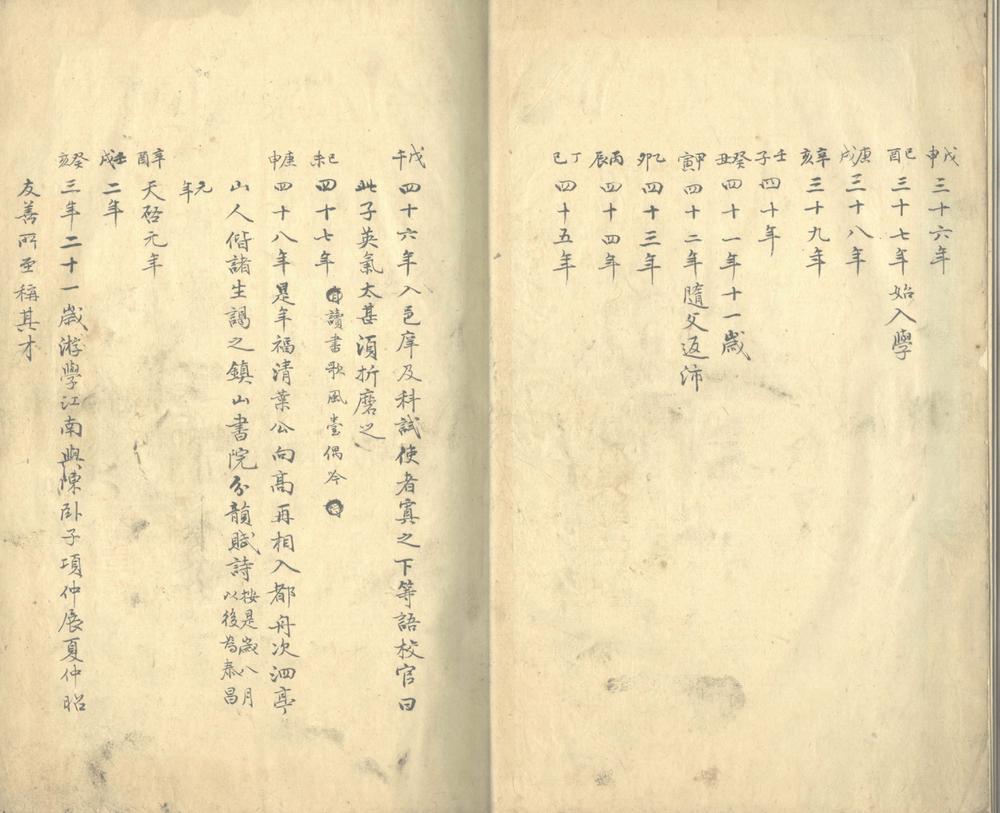 戊申三十六年
己酉三十七年始入學
庚戌三十八年
辛亥三十九年
壬子四十年
癸丑四十一年十一歲
甲寅四十二年隨父返沛
乙卯四十三年
丙辰四十四年
丁巳四十五年
戊午四十六年入邑庠及科試使者寘之下等語校官曰
此子英氣太甚須折磨之
己未四十七年 讀書歌風臺偶吟
庚申四十八年是年福清葉公向高再相入都舟次泗亭
山人偕諸生謁之鎮山書院分韻賦詩按是歲八月以後為泰昌
元年
辛酉天啓元年
壬戌二年
癸亥三年二十一歲游學江南與陳卧子項仲展夏仲昭
友善所至稱其才